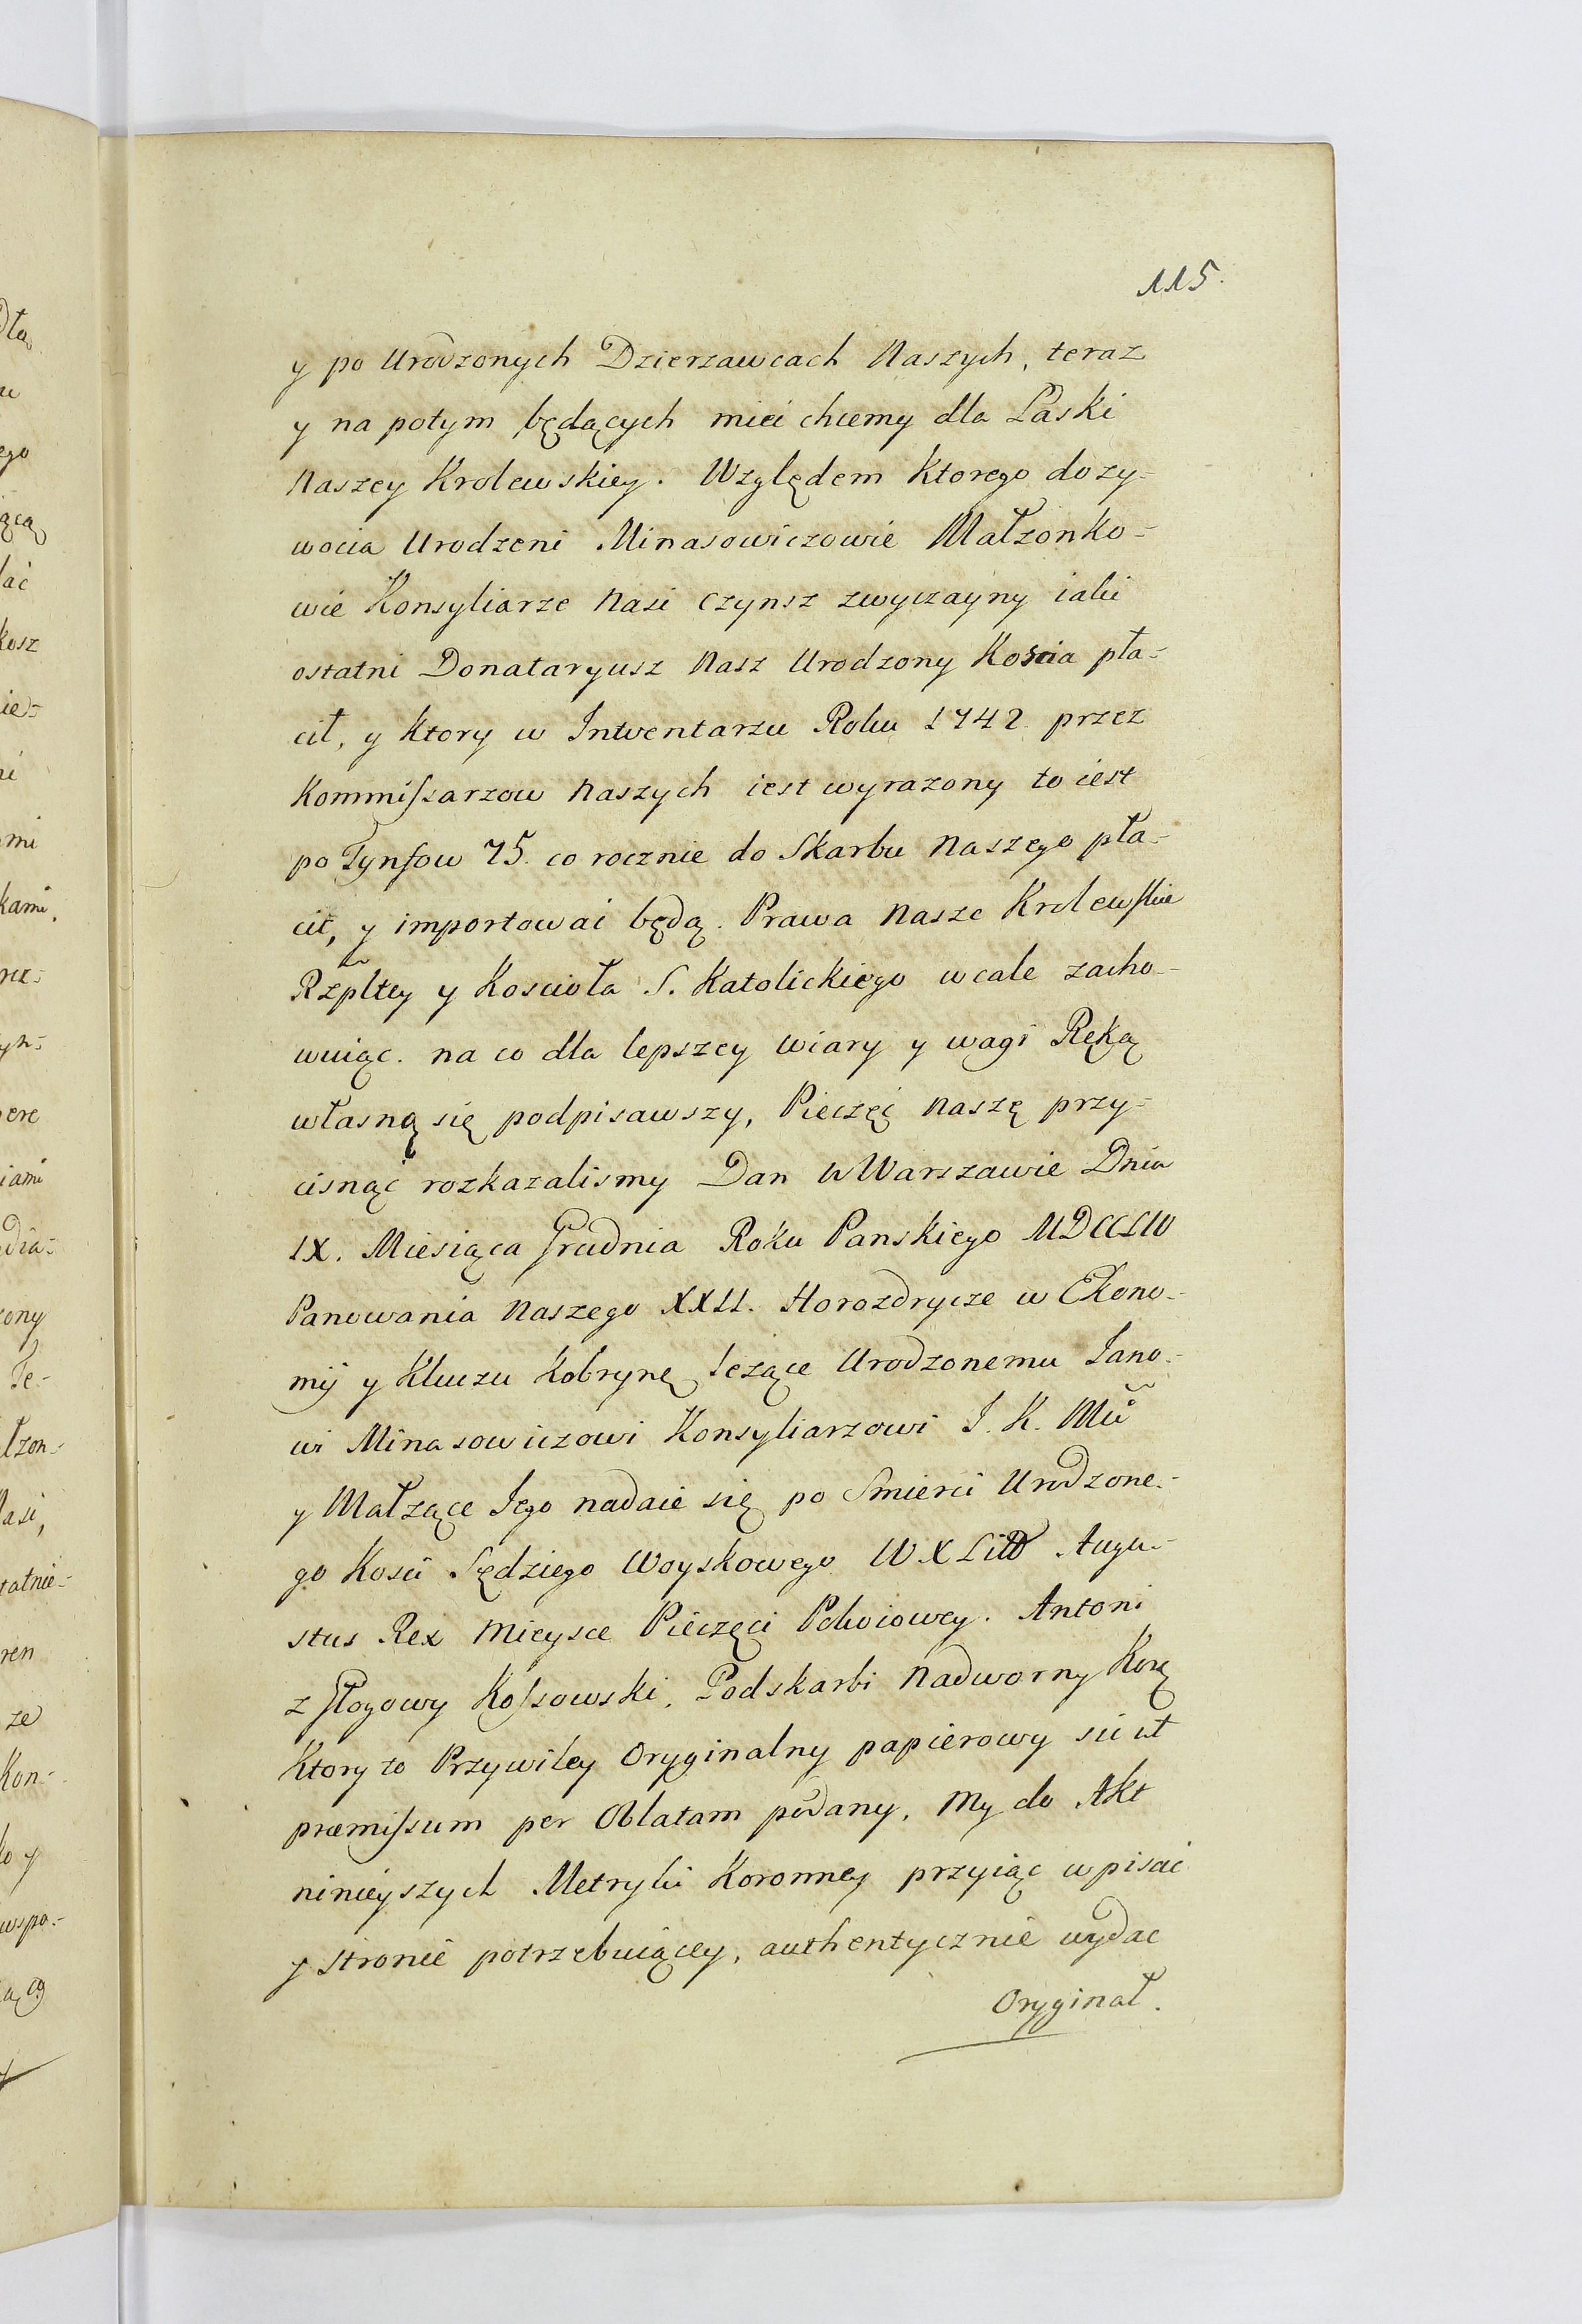 115.
y po Urodzonych Dzierzawcach Naszych, teraz
y na potym będących mieć chcemy dla Łaski
Naszey Krolewskiey. Względem Ktorego dozy-
wocia Urodzeni Minasowiczowie Małzonko-
wie Konsyliarze Nasi Czynsz zwyczayny iaki
ostatni Donataryusz Nasz Urodzony Koscia pła-
cił, y Ktory w Intwentarzu Roku 1742. przez
Kommissarzow Naszych iest wyrazony to iest
po Tynfow 75. co rocznie do Skarbu Naszego pła-
cić, y importować będą. Prawa Nasze Krolewskie
Rzpltey y Kościoła S. Katolickiego wcale zacho-
wuiąc. na co dla lepszey wiary y wagi Ręką
własną się podpisawszy, Pieczęć Naszę przy-
cisnąć rozkazalismy Dan W Warszawie Dnia
IX. Miesiąca Grudnia Roku Panskiego MDCCLIV
Panowania Naszego XXII. Horozdrycze w Ekono-
mij y Kluczu Kobrynę lezące Urodzonemu Iano-
wi Minasowiczowi Konsyliarzowi I. K. Mci
y Małzące Iego nadaie się po Smierci Urodzone-
go Kosci Sędziego Woyskowego W X Litt Augu-
stus Rex Mieysce Pieczęci Pokoiowey. Antoni
z Głogowy Kossowski. Podskarbi Nadworny Korę
Ktory to Przywiley Oryginalny papierowy sic ut
præmissum per Oblatam podany, My do Akt
ninieyszych Metryki Koronney przyiąc wpisać
y stronie potrzebuiącey, authentycznie wydac
Oryginał.